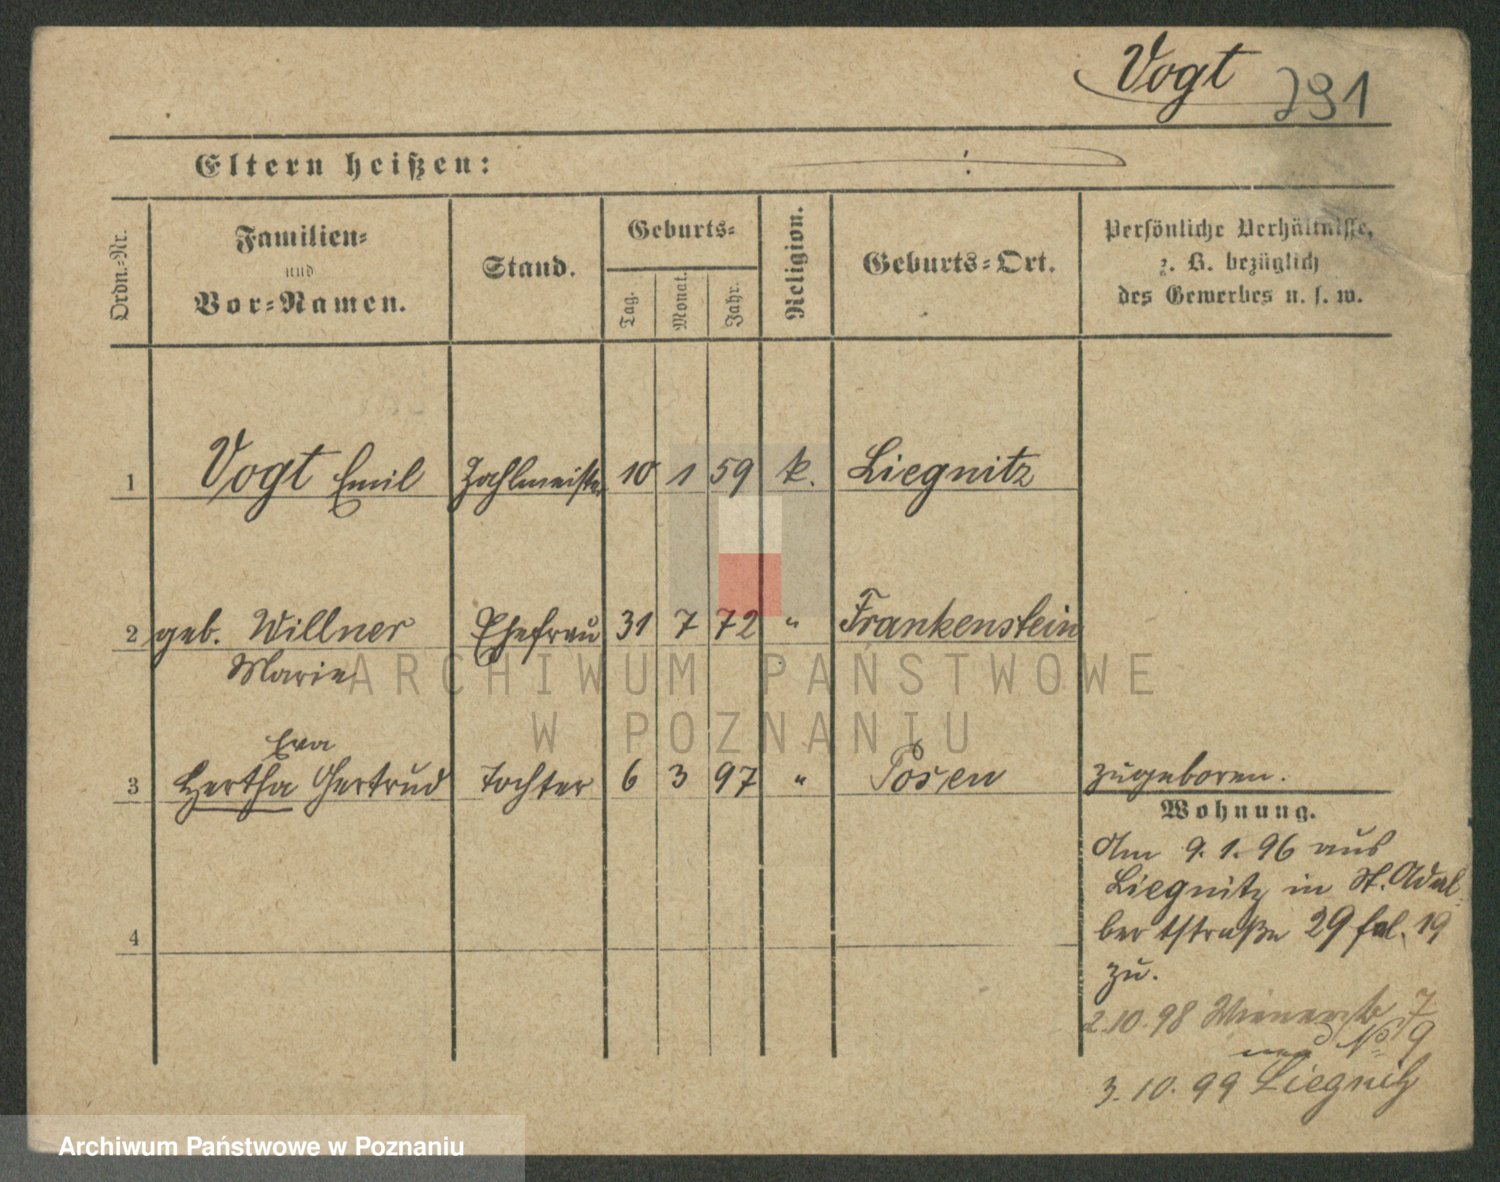 Vogt 291
Eltern heißen:
Ordn.-Nr.
Familien-
und
Vor-Namen.
Stand.
Geburts-
Tag.
Monat.
Jahr.
Religion.
Geburts-Ort.
Persönliche Verhältnisse,
z. B. bezüglich
des Gewerbes u. s. w.
1 Vogt Emil Zahlmeister 10 1 59 k. Liegnitz
2 geb. Willner Ehefrau 31 7 72 " Frankenstein
Marie
Eva
3 Hertha Gertrud Tochter 6 3 97 " Posen zugeboren.
Wohnung.
Am 9.1.96 aus
Liegnitz in St. Adal-
bertstraße 29 fal. 19
zu.
4
2.10.98 Wienerstr 7
No 9
3.10.99 nach Liegnitz
ARCHIWUM PAŃSTWOWE
W POZNANIU
Archiwum Państwowe w Poznaniu